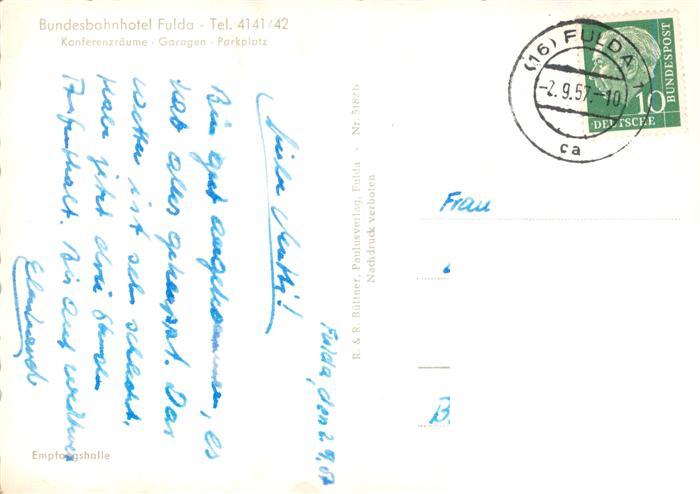 Bundesbahnhotel Fulda · Tel. 4141/42
Konferenzräume · Garagen · Parkplatz
Fulda, den 2.9.57
Liebe Mutti!
Bin gut angekommen, es
hat alles geklappt. Das
Wetter ist sehr schlecht.
Habe jetzt drei Stunden
Aufenthalt. Bis auf
Empfangshalle
R. & R. Büttner, Paulusverlag, Fulda · Nr. 3182b
Nachdruck verboten
(16) FULDA 1
-2.9.57.-10
ca
10
DEUTSCHE
BUNDESPOST
Frau
B